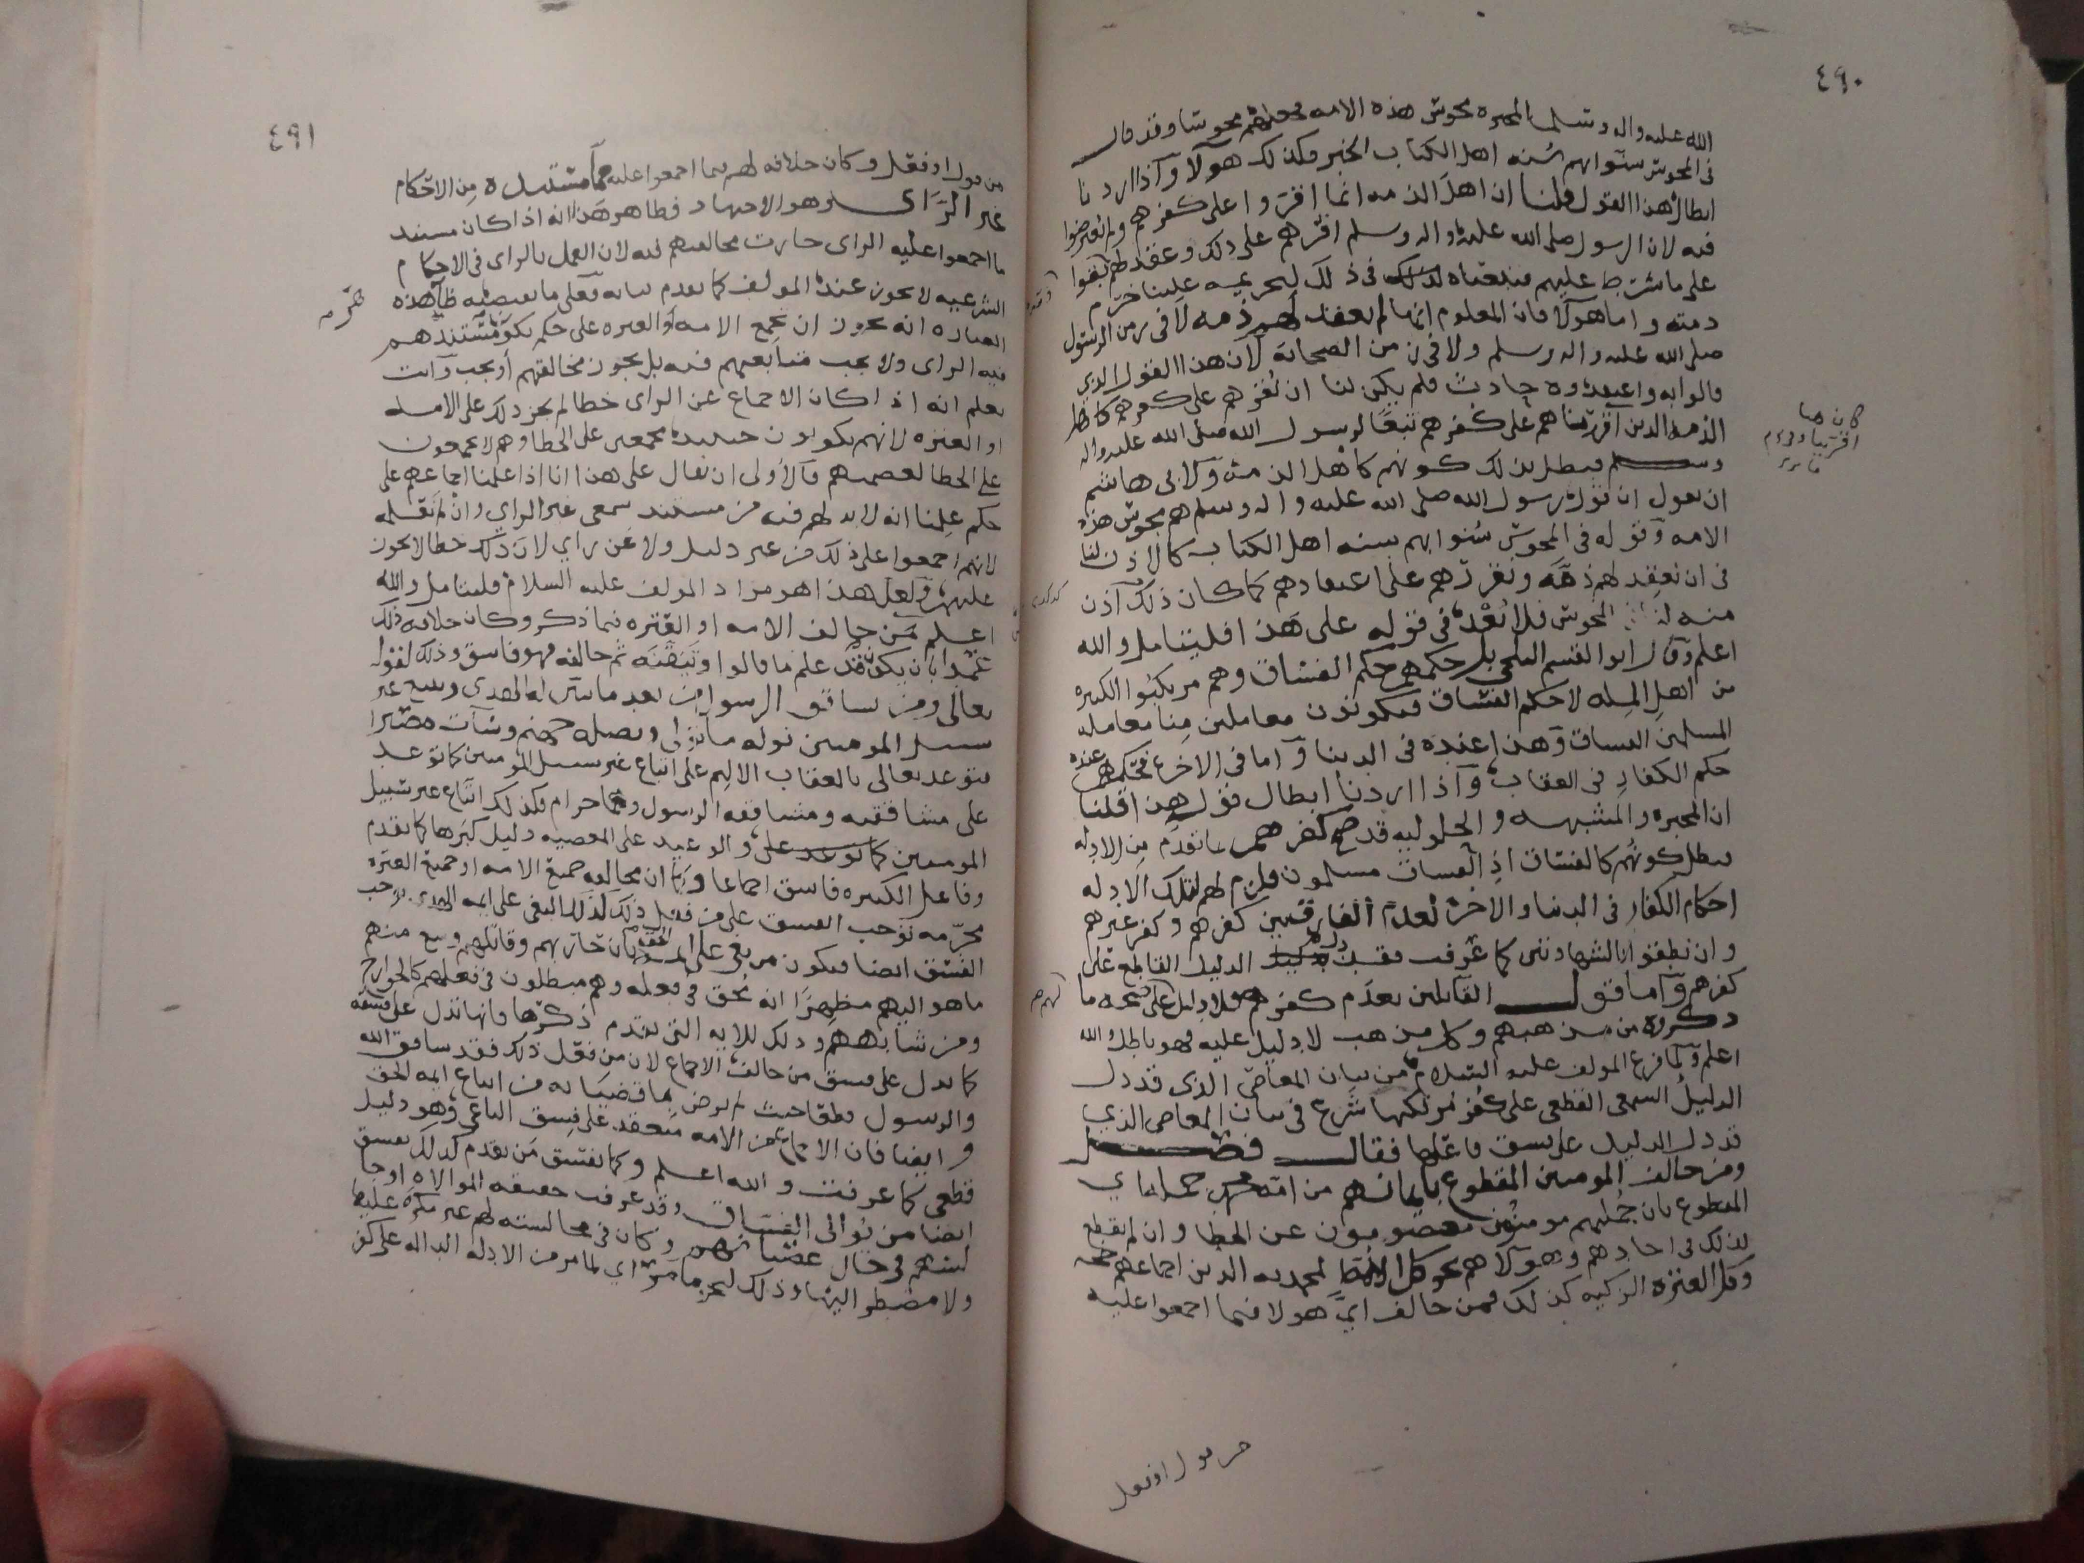 ٤٩٠
الله عليه واله وسلم المجبره مجوس هذه الامه فجعلهم مجوسا وقد قال
في المجوس سنوا بهم سنه اهل الكتاب الخبر وكذلك هولا واذا اردنا
ابطال هذا القول قلنا ان اهل الذمه انما اقروا على كفرهم ولم يتعرضوا
فيه لان الرسول صلى الله عليه واله وسلم اقرهم على ذلك وعقد لهم
على ما شرط عليهم في ذلك لتحريمه علينا
ذمته واما هولا فان المعلوم انها لم يعقد لهم ذمه لا في زمن الرسول
صلى الله عليه واله وسلم ولا في زمن الصحابه لان هذا القول الذي
قالوا به واعتقدوه حادث فلم يكن لنا ان نقرهم على كفرهم كاهل
الذمه الذين اقررناهم على كفرهم تبعا لرسول الله صلى الله عليه واله
وسلم فبطل بذلك كونهم كاهل الذمه ولابي هاشم
ان يقول ان قول رسول الله صلى الله عليه واله وسلم هم مجوس هذه
الامه وقوله في المجوس سنوا بهم سنه اهل الكتاب كالاذن لنا
في ان نعقد لهم ذمه ونقررهم على اعتقادهم كما كان ذلك اذن
منه لنا في المجوس فلا بعد في قوله على هذا فليتامل والله
اعلم وقال ابو القسم البلخي بل حكمهم حكم الفساق وهم مرتكبوا الكبيره
من اهل المله لا حكم الفساق فيكونون معاملين منا معامله
المسلمين الفساق وهذا عنده في الدنيا واما في الاخره فحكمهم عنده
حكم الكفار في العقاب واذا اردنا ابطال قول هذا قلنا
ان المجبره والمشبهه والحلوليه قد صح كفرهم بما تقدم من الادله
فبطل كونهم كالفساق اذ الفساق مسلمون ولزم لهم لتلك الادله
احكام الكفار في الدنيا والاخره لعدم الفارق بين كفرهم وكفر غيرهم
وان نطقوا بالشهادتين كما عرفت فقد دل الدليل القاطع على
كفرهم واما قول القائلين بعدم كفرهم فلا دليل على صحه ما
ذكروه من مذهبهم وكل مذهب لا دليل عليه فهو باطل والله
اعلم ولما فرغ المولف عليه السلام من بيان المعاصي الذي قد دل
الدليل السمعي القطعي على كفر مرتكبها شرع في بيان المعاصي الذي
قد دل الدليل على فسق فاعلها فقال فصل
ومن خالف المومنين المقطوع بايمانهم من امه محمد جملة اي
المقطوع بان جملتهم مومنون معصومون عن الخطا وان لم يقطع
بذلك في احادهم وهولا هم نحو كل الامه المحمديه الذين اجماعهم حجه
وكل العتره الزكيه كذلك فمن خالف اي هولا فيما اجمعوا عليه
من قول او فعل
كان هنا
٤٩١
من قول او فعل وكان خلافه لهم فيما اجمعوا عليه مما مستنده من الاحكام
غير الراى وهو الاجتهاد فظاهر هذا انه اذا كان مستند
ما اجمعوا عليه الراى جازت مخالفتهم فيه لان العمل بالراى في الاحكام
الشرعيه لا يجوز عنده المولف كما تقدم بيانه فعلى ما يقتضيه ظاهر هذه
العباره انه يجوز ان تجمع الامه او العتره على حكم يكون مستندهم
فيه الراى ولا يجب متابعتهم فيه بل يجوز مخالفتهم او يجب وانت
تعلم انه اذا كان الاجماع عن الراى خطا لم يجز ذلك على الامه
او العتره لانهم يكونون حينئذ مجمعين على الخطا وهم لا يجمعون
على الخطا لعصمتهم فالاولى ان يقال على هذا انا اذا علمنا اجماعهم على
حكم علمنا انه لا بد لهم فيه من مستند سمعي غير الراي وان لم نعلمه
لانهم اجمعوا على ذلك من غير دليل ولا عن راي لان ذلك خطا لا يجوز
عليهم ولعل هذا هو مراد المولف عليه السلام فليتامل والله
اعلم فمن خالف الامه او العتره فيما ذكر وكان خلافه ذلك
عمدا بان يكون قد علم ما قالوا وتيقنه ثم خالفه فهو فاسق وذلك لقوله
تعالى ومن يشاقق الرسول من بعد ما تبين له الهدى ويتبع غير
سبيل المومنين نوله ما تولى ونصله جهنم وسآت مصيرا
فتوعد تعالى بالعقاب الاليم على اتباع غير سبيل المومنين كما توعد
على مشاققته ومشاققه الرسول وهما حرام فكذلك اتباع غير سبيل
المومنين كما توعد على والوعيد على المعصيه دليل كبرها كما تقدم
وفاعل الكبيره فاسق اجماعا وكما ان مخالفه جميع الامه او جميع العتره
محرمه توجب الفسق على من فعل ذلك كذلك البغي على ايمه الهدى يوجب
الفسق ايضا فيكون من بغى على ايمه الحق بان حاربهم وقاتلهم ومنع منهم
ما هو اليهم مظهرا انه محق في فعله وهم مبطلون في فعلهم كالخوارج
ومن شابههم وذلك للايه التي تقدم ذكرها فانها تدل على فسقه
كما تدل على فسق من خالف الاجماع لان من فعل ذلك فقد شاقق الله
والرسول مطقا حيث لم يرض بما قضيا به من اتباع ايمه الحق
وايضا فان الاجماع من الامه منعقد على فسق الباغي وهو دليل
قطعي كما عرفت والله اعلم وكما يفسق من تقدم كذلك يفسق
ايضا من توالى الفساق وقد عرفت حقيقه الموالاه او جا
لسهم في حال عصيانهم وكان في مجالسته لهم غير مكره عليها
ولا مضطر اليها وذلك لنحو ما مر اي لما مر من الادله الداله على كفر